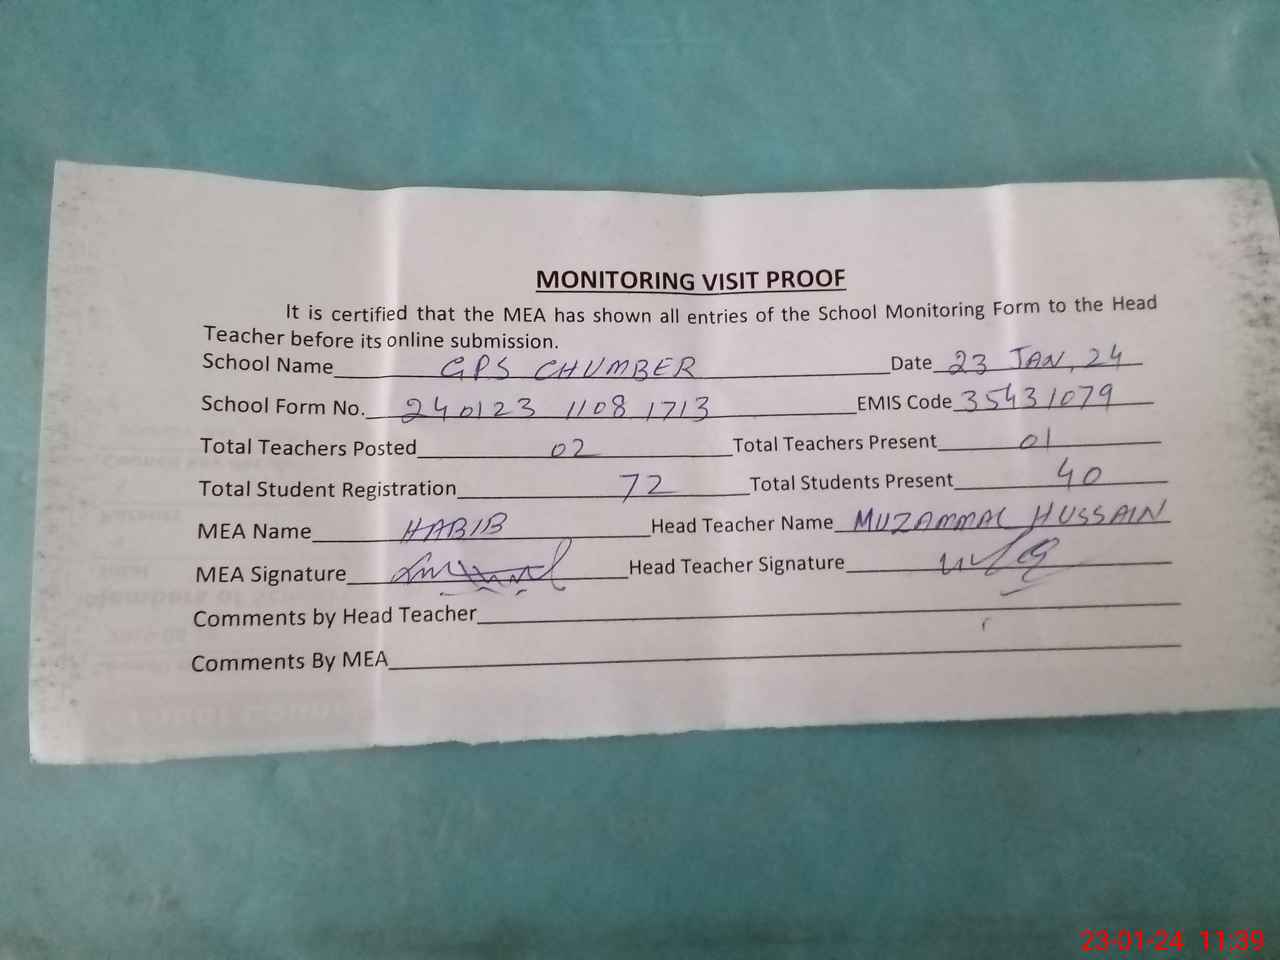 MONITORING VISIT PROOF
It is certified that the MEA has shown all entries of the School Monitoring Form to the Head
Teacher before its online submission.
School Name GPS CHUMBER Date 23 JAN, 24
School Form No. 240123 1108 1713 EMIS Code 35431079
Total Teachers Posted 02 Total Teachers Present 01
Total Student Registration 72 Total Students Present 40
MEA Name HABIB Head Teacher Name MUZAMMAL HUSSAIN
MEA Signature Head Teacher Signature
Comments by Head Teacher
Comments By MEA
23-01-24 11:39